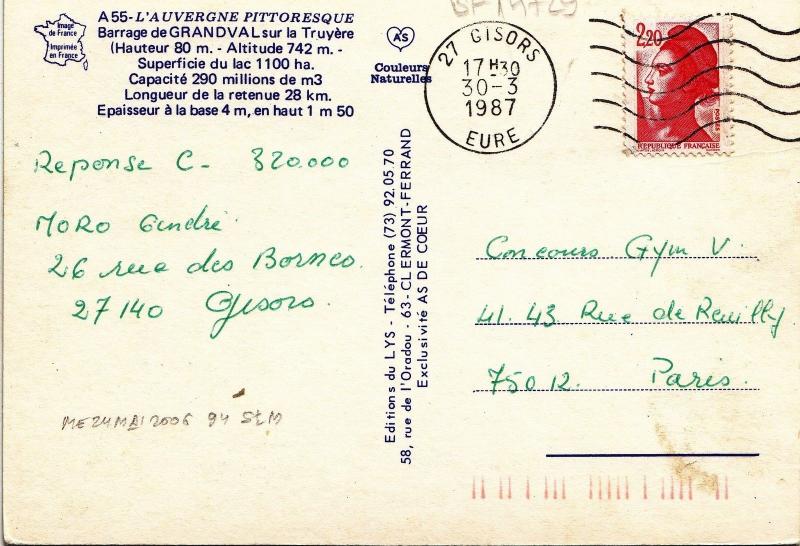 Image
de France
Imprimée
en France
A 55 - L'AUVERGNE PITTORESQUE
Barrage de GRANDVAL sur la Truyère
(Hauteur 80 m. - Altitude 742 m. -
Superficie du lac 1100 ha.
Capacité 290 millions de m3
Longueur de la retenue 28 km.
Epaisseur à la base 4 m, en haut 1 m 50
AS
Couleurs
Naturelles
27 GISORS
17 H 30
30-3
1987
EURE
2,20
POSTES
REPUBLIQUE FRANÇAISE
Reponse C - 320.000
MORO André
26 rue des Bornes.
27140 Gisors.
ME 24 MAI 2006 94
Editions du LYS - Téléphone (73) 92.05 70
58, rue de l'Oradou - 63-CLERMONT-FERRAND
Exclusivité AS DE CŒUR
Concours Gym V.
41.43 Rue de Reuilly
75012. Paris.